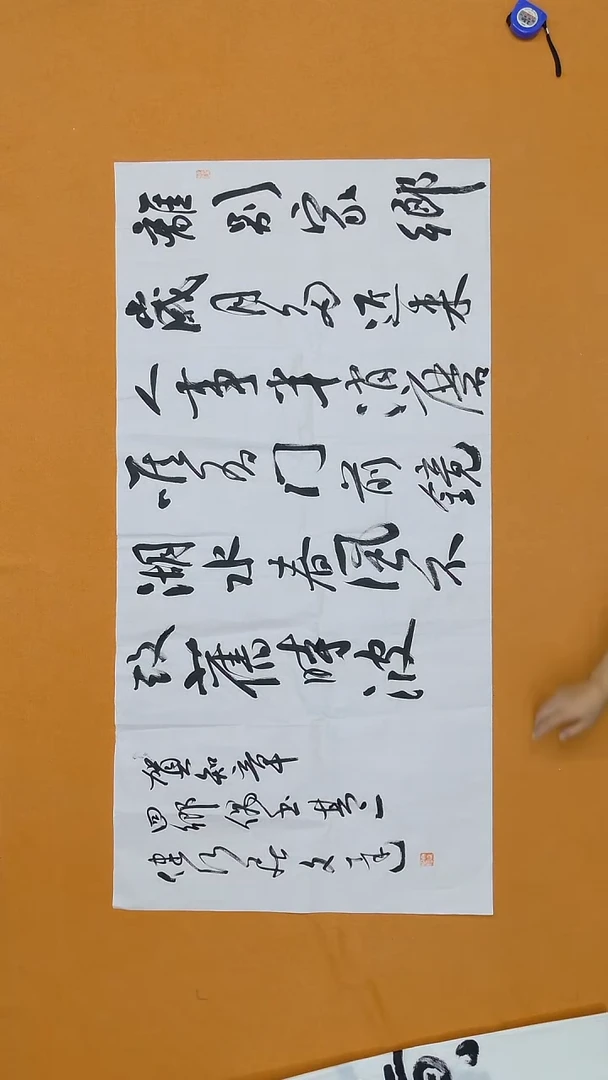 離別家鄉
歲月多近來
人事半消磨
唯有门前鏡
湖水春風不
改舊時波
賀知章
回鄉偶書其一